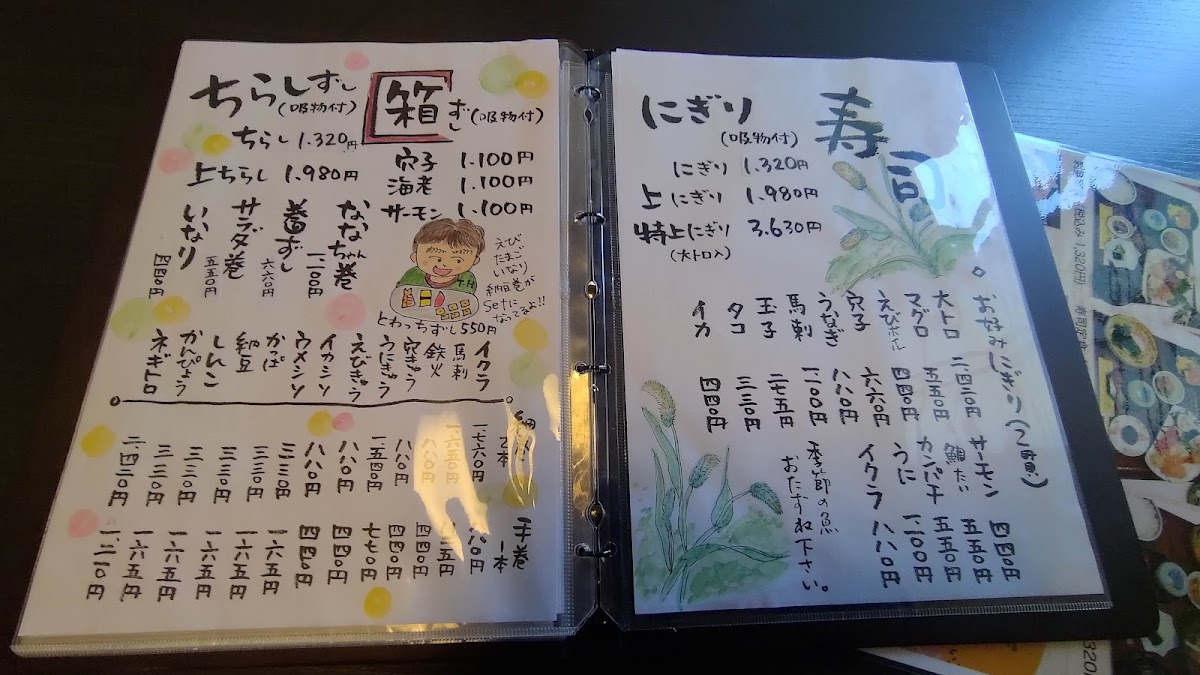 ちらしずし
(吸物付)
ちらし 1.320円
上ちらし 1.980円
箱ずし
(吸物付)
穴子 1.100円
海老 1.100円
サーモン 1.100円
ななちゃん巻 一.一00円
番ずし 六六0円
サラダ巻 五五0円
いなり 四四0円
えび、
たまご、
いなり
納豆巻が
setに
なってるよ!!
とわっちずし550円
イクラ
馬刺
鉄火
穴きゅう
うにきゅう
えびきゅう
イカシソ
ウメシソ
かっぱ
納豆
しんこ
かんぴょう
ネギトロ
細
2本
一.七六0円
一.六五0円
八八0円
八八0円
一.五四0円
八八0円
八八0円
三三0円
三三0円
三三0円
三三0円
三三0円
二.四二0円
手巻
一本
八八0円
八二五円
四四0円
四四0円
七七0円
四四0円
四四0円
一六五円
一六五円
一六五円
一六五円
一六五円
一.二一0円
寿司
にぎり
(吸物付)
にぎり 1.320円
上にぎり 1.980円
特上にぎり 3.630円
(大トロ入)
お好みにぎり(2貫)
大トロ 二.四二0円
マグロ 五五0円
えびボイル 四四0円
穴子 六六0円
うなぎ 八八0円
馬刺 一.100円
玉子 二七五円
タコ 三三0円
イカ 四四0円
サーモン 四四0円
鯛たい 五五0円
カンパチ 五五0円
うに 一.100円
イクラ 八八0円
季節の魚
おたずね下さい。